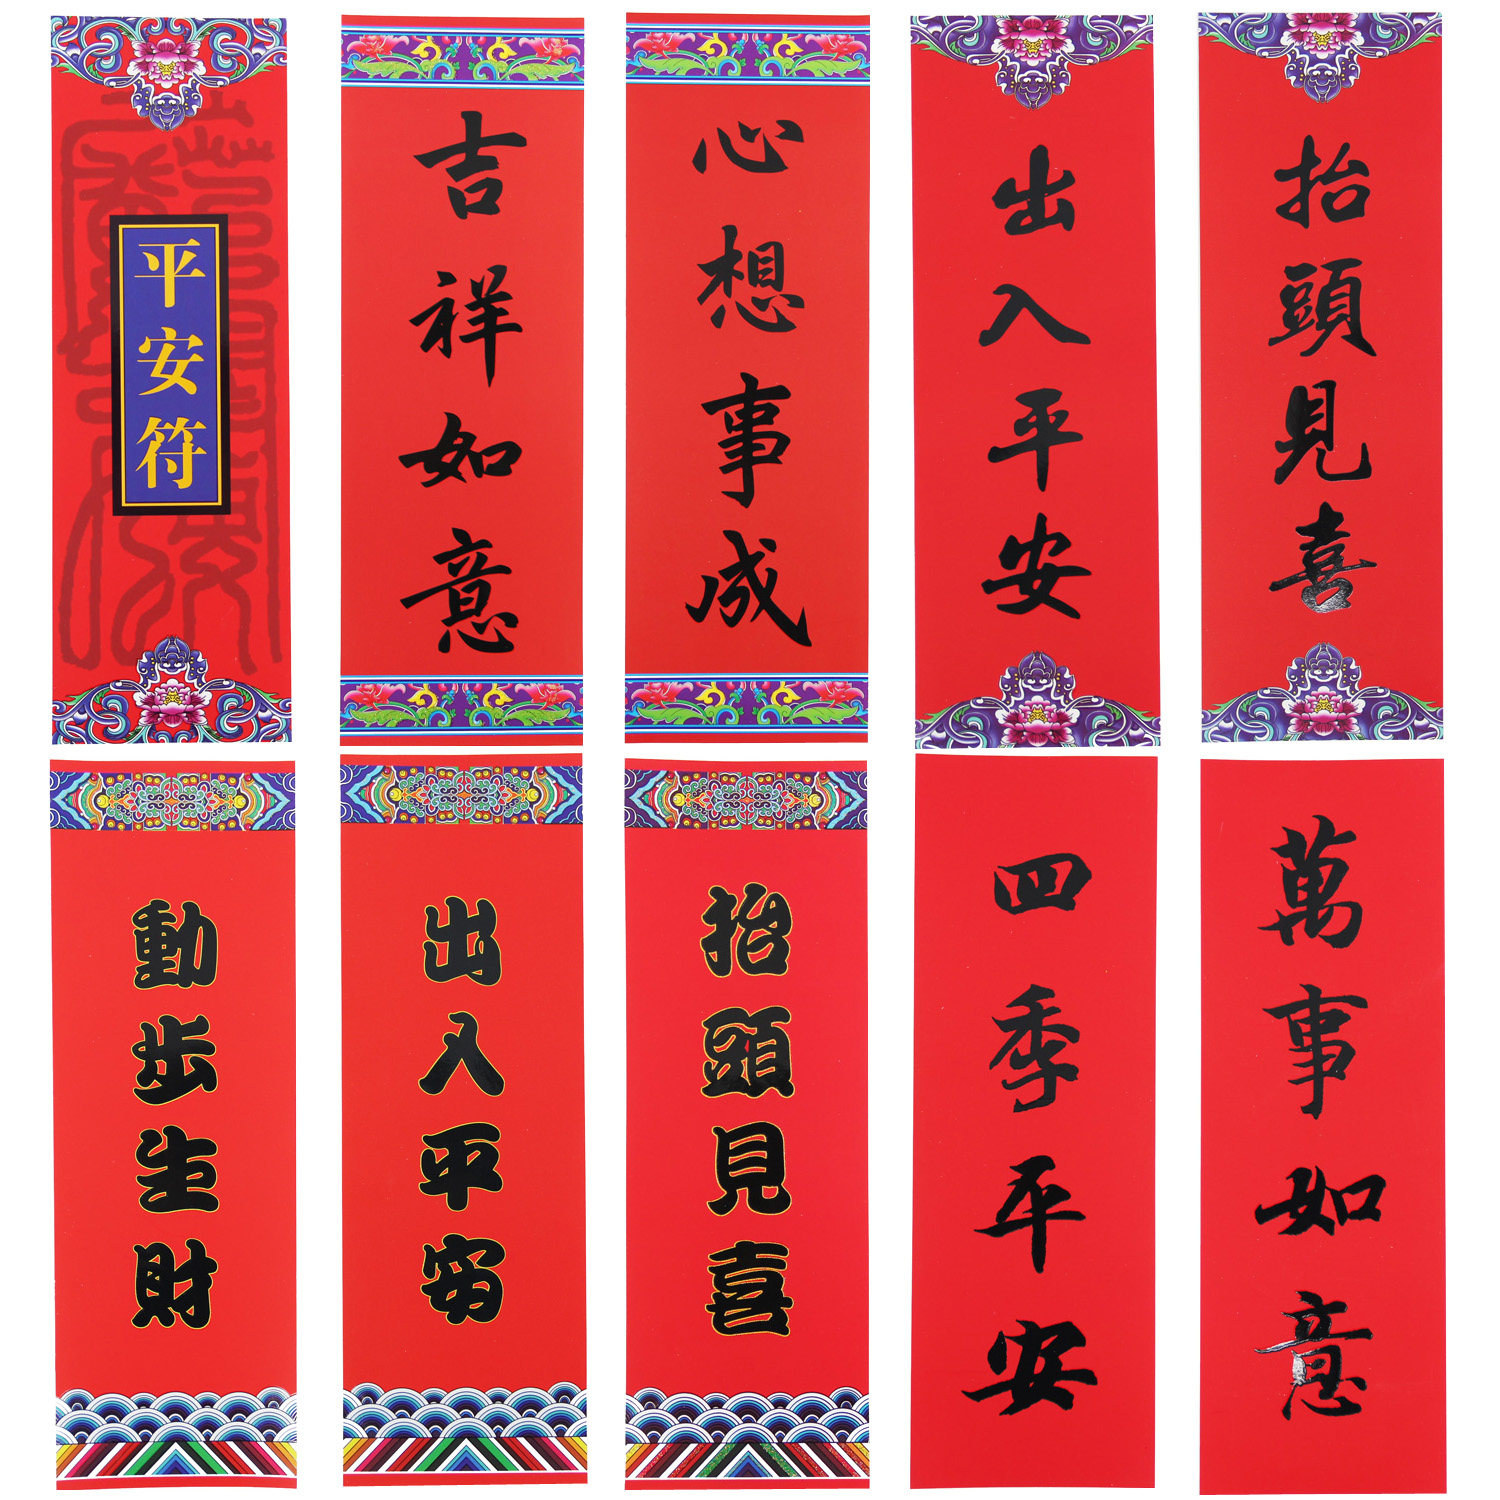 平安符
吉祥如意
心想事成
出入平安
抬頭見喜
動步生財
出入平安
抬頭見喜
四季平安
萬事如意